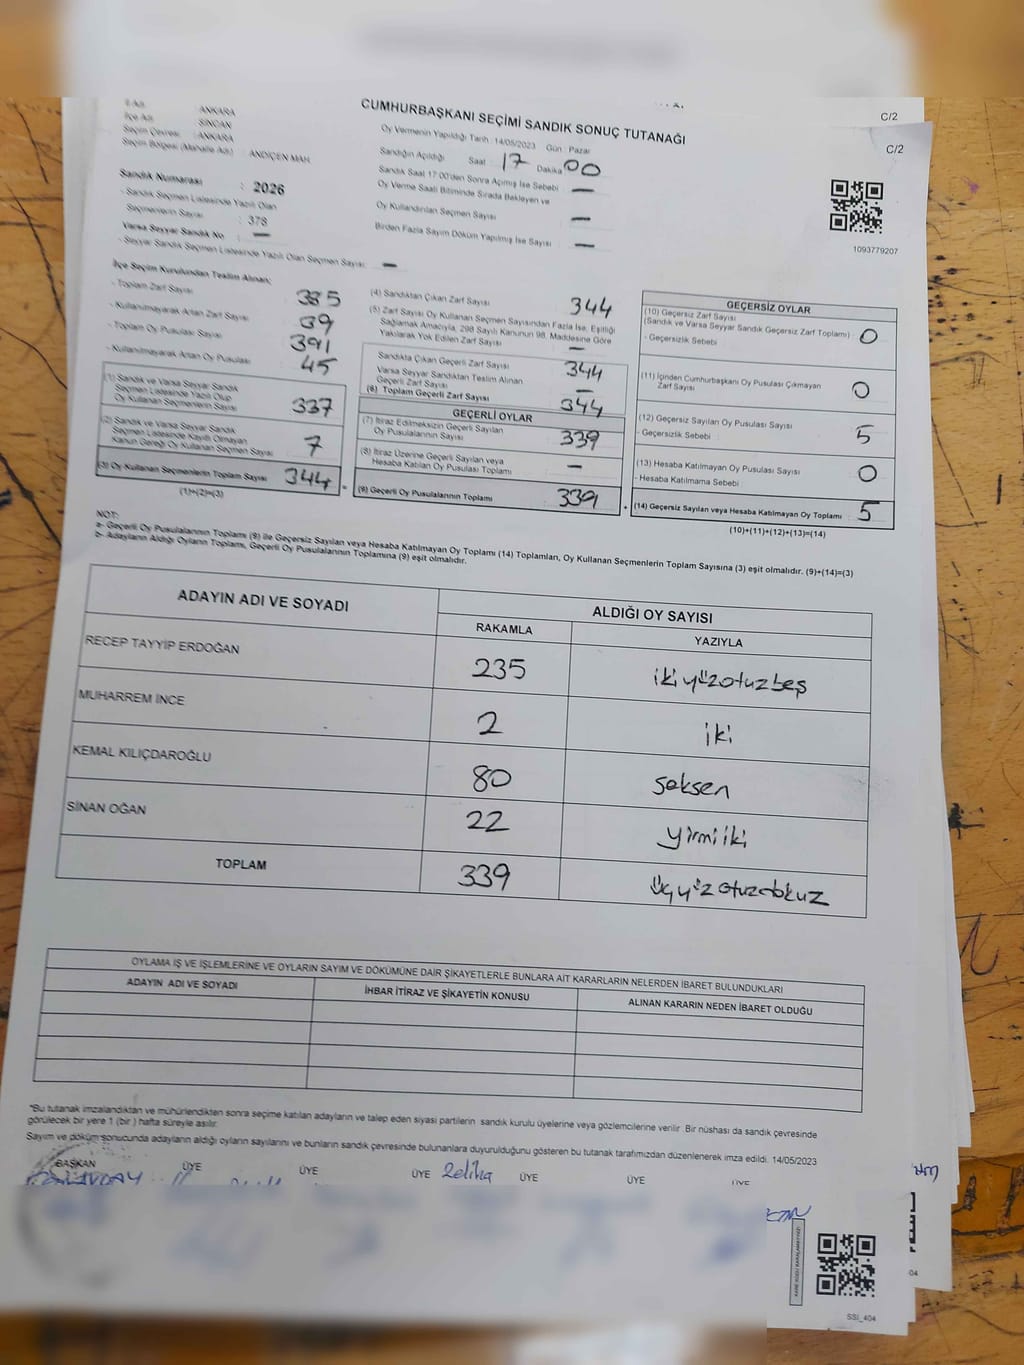 C/2
C/2
İli Adı : ANKARA
İlçe Adı : SİNCAN
Seçim Çevresi : ANKARA
Seçim Bölgesi (Mahalle Adı) : ANDİÇEN MAH
Sandık Numarası : 2026
- Sandık Seçmen Listesinde Yazılı Olan
Seçmenlerin Sayısı : 378
Varsa Seyyar Sandık No : —
- Seyyar Sandık Seçmen Listesinde Yazılı Olan Seçmen Sayısı : —
CUMHURBAŞKANI SEÇİMİ SANDIK SONUÇ TUTANAĞI
Oy Vermenin Yapıldığı Tarih : 14/05/2023 Gün : Pazar
Sandığın Açıldığı Saat : 17 Dakika : 00
Sandık Saat 17:00'den Sonra Açılmış İse Sebebi : —
Oy Verme Saati Bitiminde Sırada Bekleyen ve
Oy Kullandırılan Seçmen Sayısı : —
Birden Fazla Sayım Döküm Yapılmış İse Sayısı : —
1093779207
İlçe Seçim Kurulundan Teslim Alınan;
- Toplam Zarf Sayısı 385
- Kullanılmayarak Artan Zarf Sayısı 39
- Toplam Oy Pusulası Sayısı 391
- Kullanılmayarak Artan Oy Pusulası 45
(1) Sandık ve Varsa Seyyar Sandık
Seçmen Listesinde Yazılı Olup
Oy Kullanan Seçmenlerin Sayısı 337
(2) Sandık ve Varsa Seyyar Sandık
Seçmen Listesinde Kayıtlı Olmayan
Kanun Gereği Oy Kullanan Seçmen Sayısı 7
(3) Oy Kullanan Seçmenlerin Toplam Sayısı 344
(1)+(2)=(3)
(4) Sandıktan Çıkan Zarf Sayısı 344
(5) Zarf Sayısı Oy Kullanan Seçmen Sayısından Fazla İse, Eşitliği
Sağlamak Amacıyla, 298 Sayılı Kanunun 98. Maddesine Göre
Yakılarak Yok Edilen Zarf Sayısı —
Sandıkta Çıkan Geçerli Zarf Sayısı 344
Varsa Seyyar Sandıktan Teslim Alınan
Geçerli Zarf Sayısı —
(6) Toplam Geçerli Zarf Sayısı 344
GEÇERLİ OYLAR
(7) İtiraz Edilmeksizin Geçerli Sayılan
Oy Pusulalarının Sayısı 339
(8) İtiraz Üzerine Geçerli Sayılan veya
Hesaba Katılan Oy Pusulası Toplamı —
= (9) Geçerli Oy Pusulalarının Toplamı 339
GEÇERSİZ OYLAR
(10) Geçersiz Zarf Sayısı
(Sandık ve Varsa Seyyar Sandık Geçersiz Zarf Toplamı) 0
- Geçersizlik Sebebi
(11) İçinden Cumhurbaşkanı Oy Pusulası Çıkmayan
Zarf Sayısı 0
(12) Geçersiz Sayılan Oy Pusulası Sayısı 5
- Geçersizlik Sebebi :
(13) Hesaba Katılmayan Oy Pusulası Sayısı 0
- Hesaba Katılmama Sebebi
+ (14) Geçersiz Sayılan veya Hesaba Katılmayan Oy Toplamı 5
(10)+(11)+(12)+(13)=(14)
NOT:
a- Geçerli Oy Pusulalarının Toplamı (9) ile Geçersiz Sayılan veya Hesaba Katılmayan Oy Toplamı (14) Toplamları, Oy Kullanan Seçmenlerin Toplam Sayısına (3) eşit olmalıdır. (9)+(14)=(3)
b- Adayların Aldığı Oyların Toplamı, Geçerli Oy Pusulalarının Toplamına (9) eşit olmalıdır.
ADAYIN ADI VE SOYADI ALDIĞI OY SAYISI
RAKAMLA YAZIYLA
RECEP TAYYİP ERDOĞAN 235 ikiyüzotuzbeş
MUHARREM İNCE 2 iki
KEMAL KILIÇDAROĞLU 80 seksen
SİNAN OĞAN 22 yirmiiki
TOPLAM 339 üçyüzotuzdokuz
OYLAMA İŞ VE İŞLEMLERİNE VE OYLARIN SAYIM VE DÖKÜMÜNE DAİR ŞİKAYETLERLE BUNLARA AİT KARARLARIN NELERDEN İBARET BULUNDUKLARI
ADAYIN ADI VE SOYADI İHBAR İTİRAZ VE ŞİKAYETİN KONUSU ALINAN KARARIN NEDEN İBARET OLDUĞU
*Bu tutanak imzalandıktan ve mühürlendikten sonra seçime katılan adayların ve talep eden siyasi partilerin sandık kurulu üyelerine veya gözlemcilerine verilir. Bir nüshası da sandık çevresinde
görülecek bir yere 1 (bir) hafta süreyle asılır.
Sayım ve döküm sonucunda adayların aldığı oyların sayılarını ve bunların sandık çevresinde bulunanlara duyurulduğunu gösteren bu tutanak tarafımızdan düzenlenerek imza edildi. 14/05/2023
BAŞKAN ÜYE ÜYE ÜYE Zeliha ÜYE ÜYE ÜYE
SSI_404